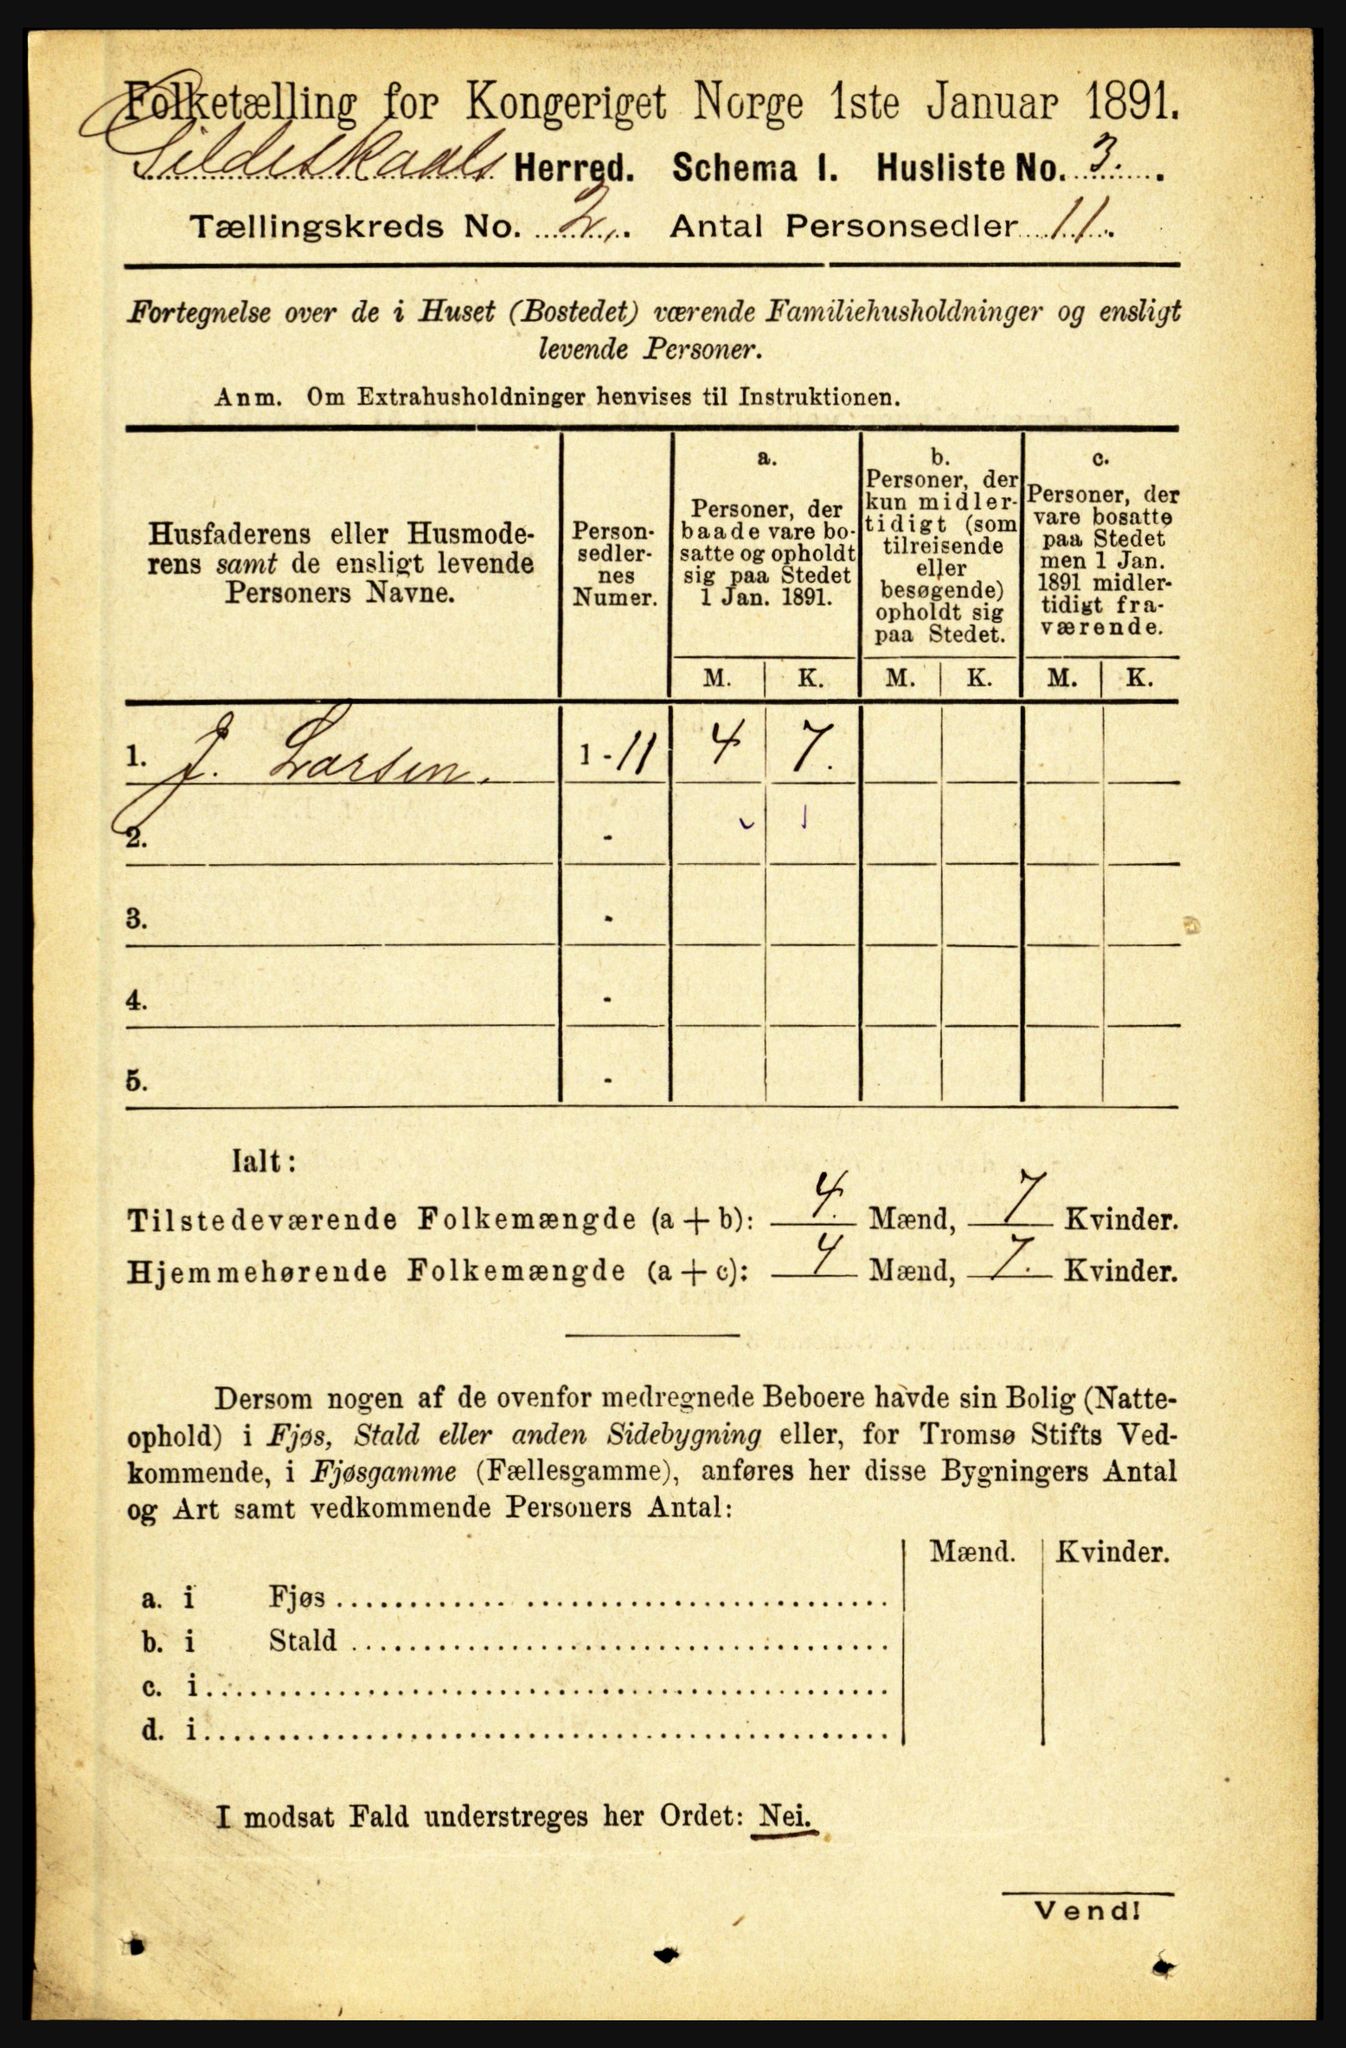 Folketælling for Kongeriget Norge 1ste Januar 1891.
Gildeskaals Herred. Schema I. Husliste No. 3.
Tællingskreds No. 2. Antal Personsedler 11.
Fortegnelse over de i Huset (Bostedet) værende Familiehusholdninger og ensligt
levende Personer.
Anm. Om Extrahusholdninger henvises til Instruktionen.
Husfaderens eller Husmode-
rens samt de ensligt levende
Personers Navne.
Person-
sedler-
nes
Numer.
a.
Personer, der
baade vare bo-
satte og opholdt
sig paa Stedet
1 Jan. 1891.
b.
Personer, der
kun midler-
tidigt (som
tilreisende
eller
besøgende)
opholdt sig
paa Stedet.
c.
Personer, der
vare bosatte
paa Stedet
men 1 Jan.
1891 midler-
tidigt fra-
værende.
M. K. M. K. M. K.
1. J. Larsen. 1 - 11 4 7.
2. -
3. -
4. -
5. -
Ialt:
Tilstedeværende Folkemængde (a + b): 4. Mænd, 7 Kvinder.
Hjemmehørende Folkemængde (a + c): 4 Mænd, 7. Kvinder.
Dersom nogen af de ovenfor medregnede Beboere havde sin Bolig (Natte-
ophold) i Fjøs, Stald eller anden Sidebygning eller, for Tromsø Stifts Ved-
kommende, i Fjøsgamme (Fællesgamme), anføres her disse Bygningers Antal
og Art samt vedkommende Personers Antal:
Mænd. Kvinder.
a. i Fjøs
b. i Stald
c. i
d. i
I modsat Fald understreges her Ordet: Nei.
Vend!